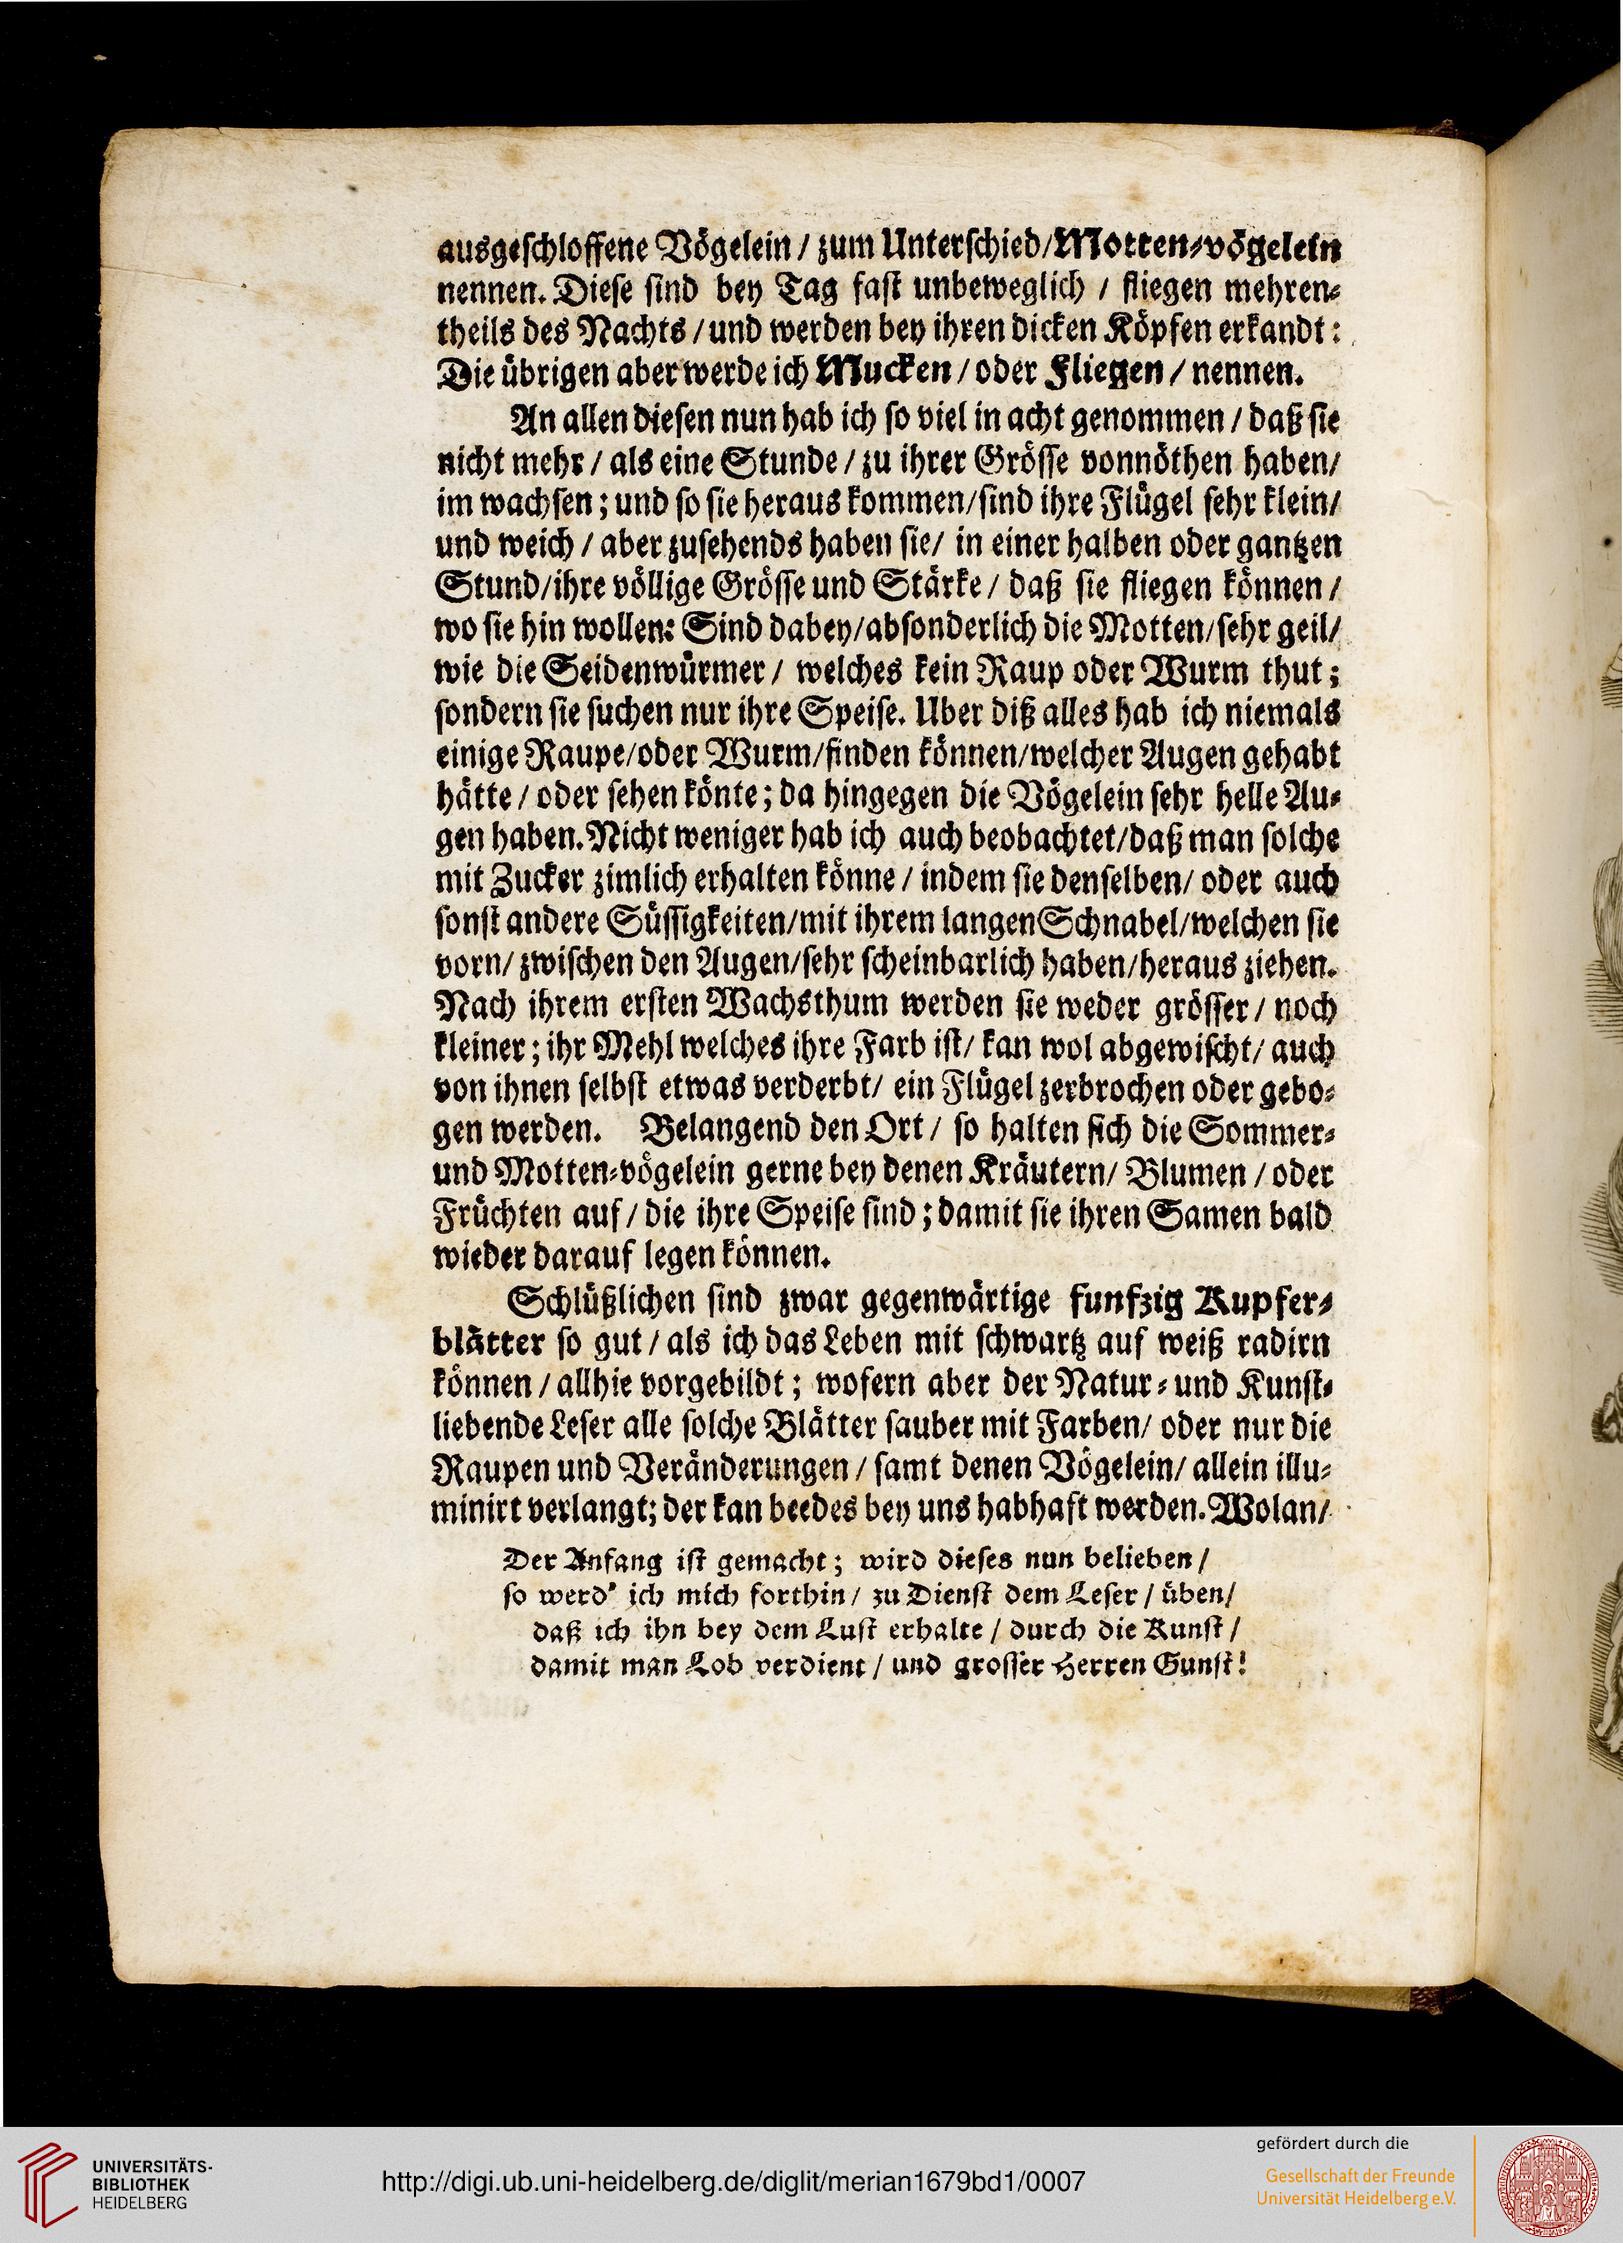 ausgeschloffene Vögelein / zum Unterschied/Motten-vögelein
nennen. Diese sind bey Tag fast unbeweglich / fliegen mehren-
theils des Nachts / und werden bey ihren dicken Köpfen erkandt:
Die übrigen aber werde ich Mucken / oder Fliegen / nennen.
An allen diesen nun hab ich so viel in acht genommen / daß sie
nicht mehr / als eine Stunde / zu ihrer Grösse vonnöthen haben/
im wachsen; und so sie heraus kommen/sind ihre Flügel sehr klein/
und weich / aber zusehends haben sie/ in einer halben oder gantzen
Stund/ihre völlige Grösse und Stärke / daß sie fliegen können /
wo sie hin wollen: Sind dabey/absonderlich die Motten/sehr geil/
wie die Seidenwürmer / welches kein Raup oder Wurm thut;
sondern sie suchen nur ihre Speise. Uber diß alles hab ich niemals
einige Raupe/oder Wurm/finden können/welcher Augen gehabt
hätte / oder sehen könte; da hingegen die Vögelein sehr helle Au-
gen haben. Nicht weniger hab ich auch beobachtet/daß man solche
mit Zucker zimlich erhalten könne / indem sie denselben/ oder auch
sonst andere Süssigkeiten/mit ihrem langen Schnabel/welchen sie
vorn/ zwischen den Augen/sehr scheinbarlich haben/heraus ziehen.
Nach ihrem ersten Wachsthum werden sie weder grösser / noch
kleiner; ihr Mehl welches ihre Farb ist/ kan wol abgewischt/ auch
von ihnen selbst etwas verderbt/ ein Flügel zerbrochen oder gebo-
gen werden. Belangend den Ort / so halten sich die Sommer-
und Motten-vögelein gerne bey denen Kräutern/ Blumen / oder
Früchten auf / die ihre Speise sind; damit sie ihren Samen bald
wieder darauf legen können.
Schlüßlichen sind zwar gegenwärtige funfzig Kupfer-
blätter so gut / als ich das Leben mit schwartz auf weiß radirn
können / allhie vorgebildt; wofern aber der Natur- und Kunst-
liebende Leser alle solche Blätter sauber mit Farben/ oder nur die
Raupen und Veränderungen / samt denen Vögelein/ allein illu-
minirt verlangt; der kan beedes bey uns habhaft werden. Wolan/
Der Anfang ist gemacht; wird dieses nun belieben /
so werd' ich mich forthin / zu Dienst dem Leser / üben/
daß ich ihn bey dem Lust erhalte / durch die Kunst /
damit man Lob verdient / und grosser Herren Gunst!
UNIVERSITÄTS-
BIBLIOTHEK
HEIDELBERG
http://digi.ub.uni-heidelberg.de/diglit/merian1679bd1/0007
gefördert durch die
Gesellschaft der Freunde
Universität Heidelberg e.V.